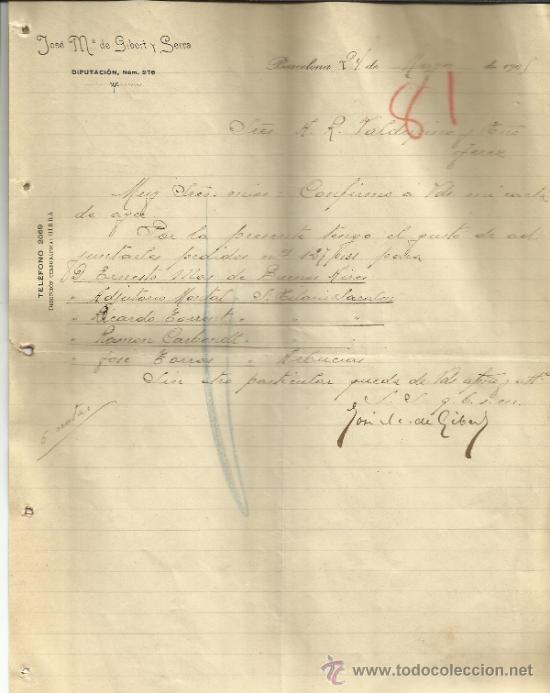 José Mª de Gibert y Serra
DIPUTACIÓN, Núm. 276
Barcelona 24 de Mayo de 190
81
Sres. A. R. Valdespino y Hno
Jerez
Muy Sres. mios = Confirmo a Vds mi carta
de ayer
Por la presente tengo el gusto de ad
juntarles pedidos nº 127 para
D Ernesto de Buenos Aires
" Adjutorio Mortal " S. Hilario Sacalm
" Ricardo Torrent " "
" Ramon Carbonell " "
" José Torras " Arbucias
Sin otro particular queda de Vds afmo y att.
S. S. q. b. s. m.
José M. de Gibert
6 notas
TELÉFONO 2069
www.todocoleccion.net